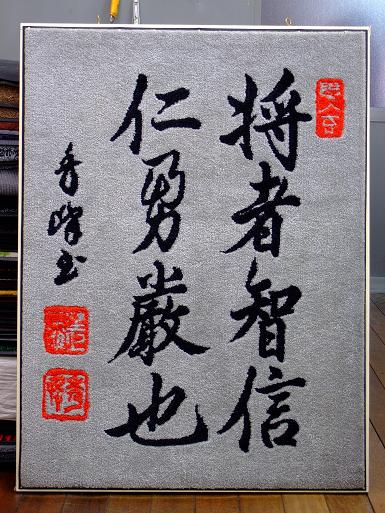 将者智信
仁勇嚴也
秀峰书